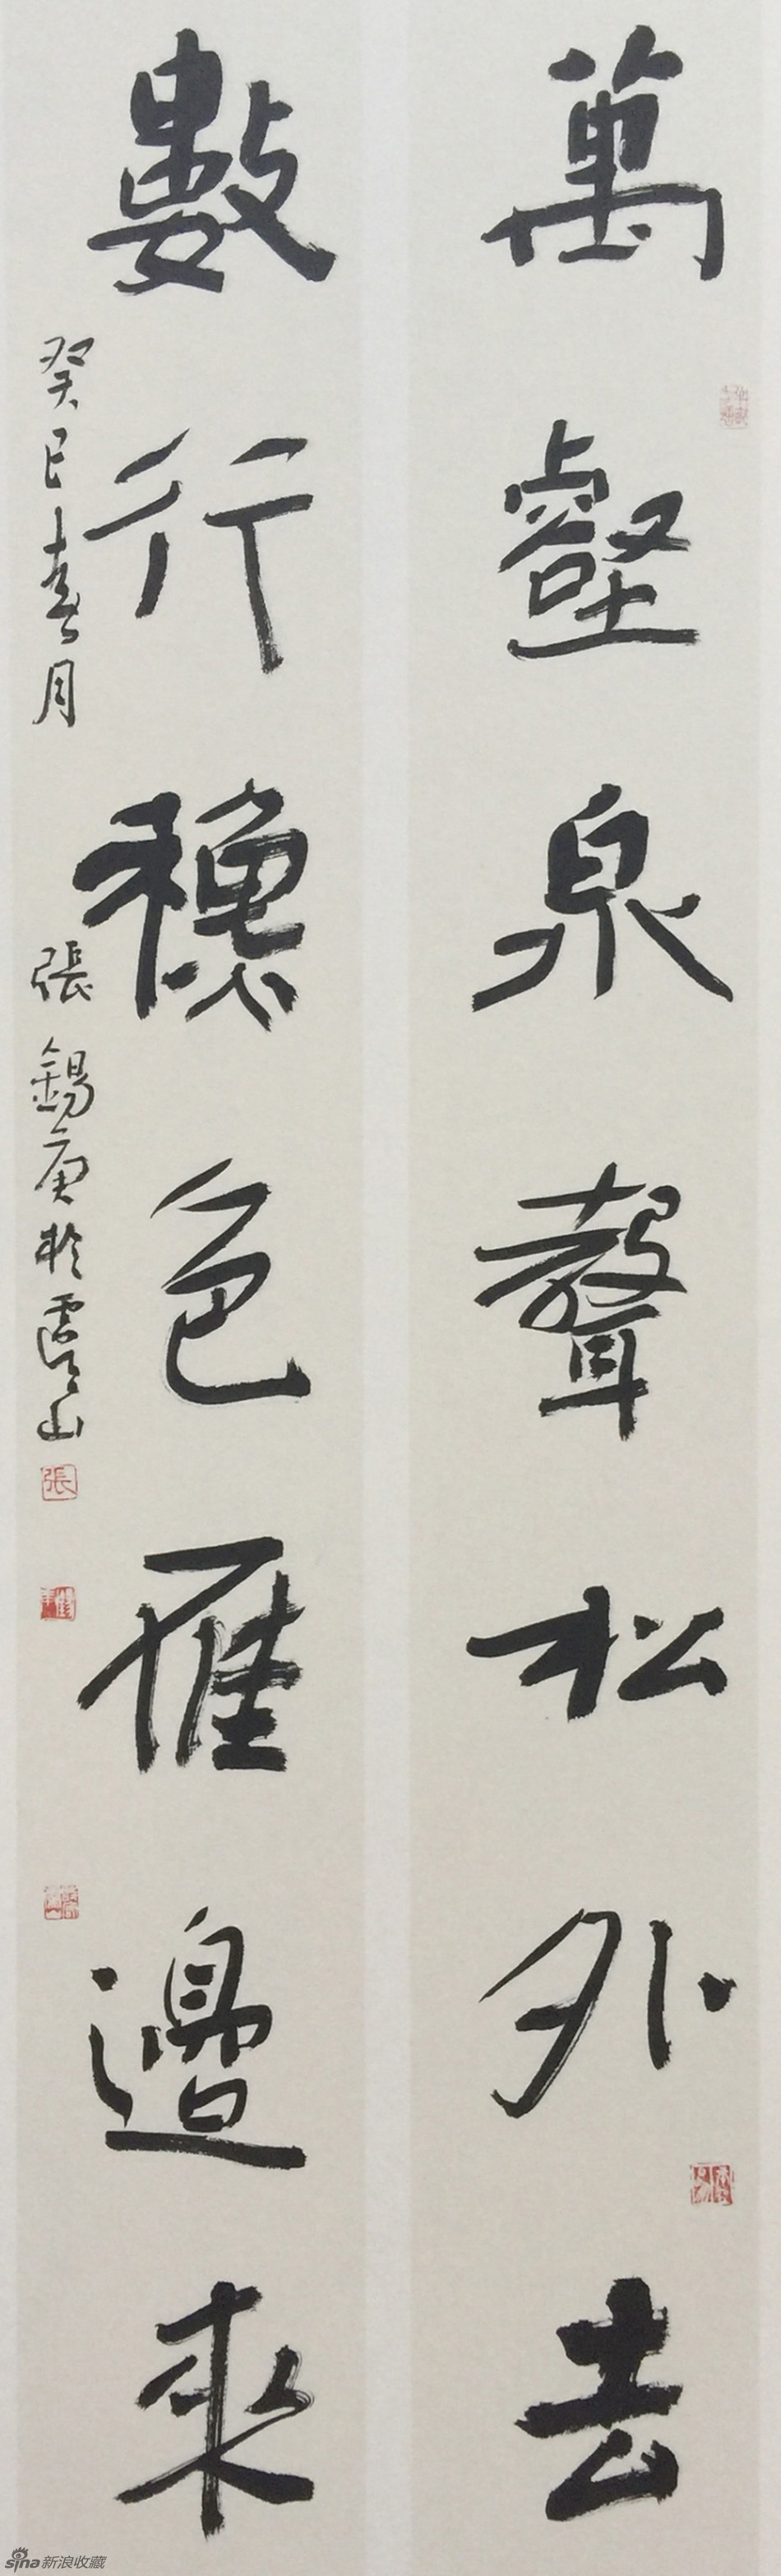 萬壑泉聲松外去
數行龝色雁邊來
癸巳春月 張錫庚於虞山
張
sina新浪收藏